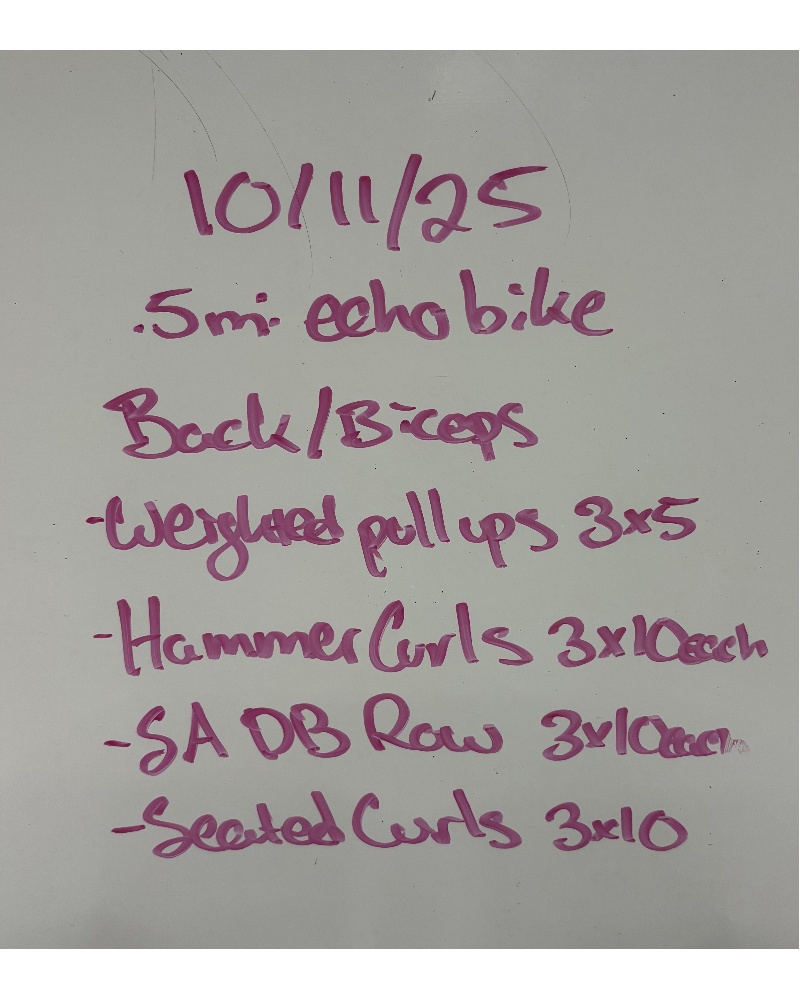 10/11/25
.5mi echo bike
Back/Biceps
-Weighted pull ups 3x5
-Hammer Curls 3x10each
-SA DB Row 3x10each
-Seated Curls 3x10